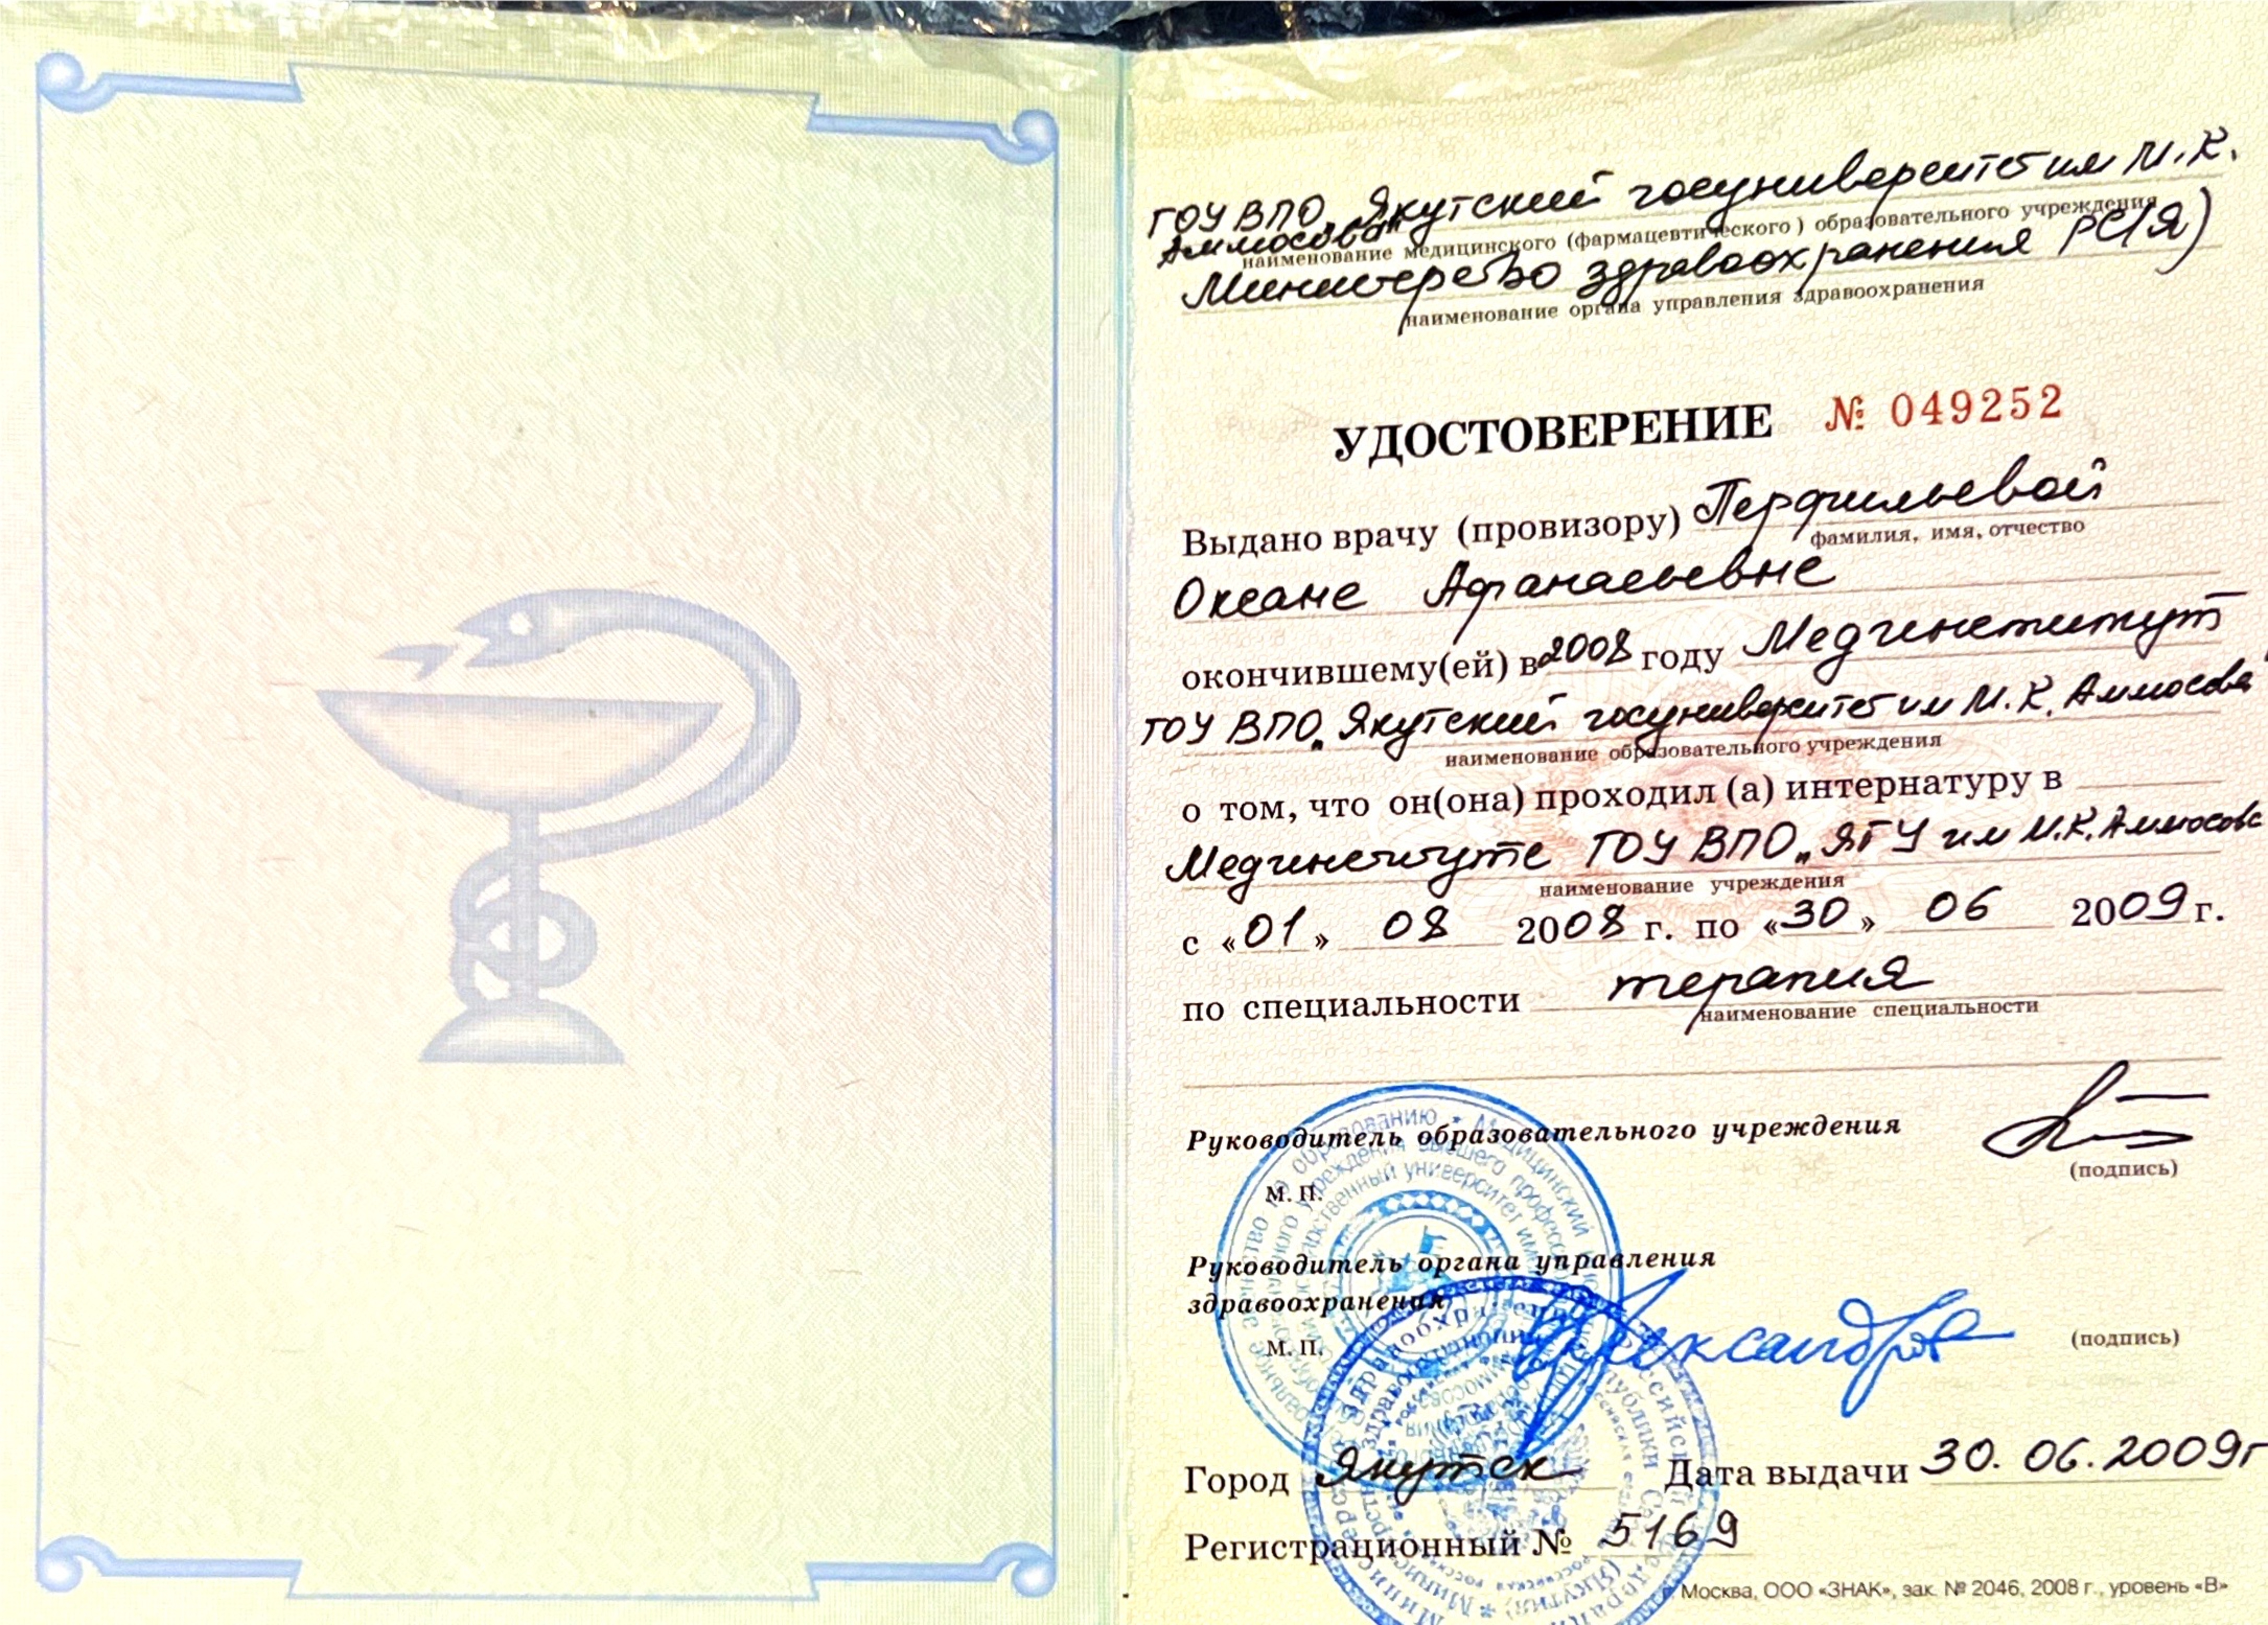 ГОУ ВПО „Якутский госуниверситет им М.К.
Аммосова"
наименование медицинского (фармацевтического) образовательного учреждения
Министерство здравоохранения РС(Я)
наименование органа управления здравоохранения
УДОСТОВЕРЕНИЕ № 049252
Выдано врачу (провизору) Перфильевой
фамилия, имя, отчество
Оксане Афанасьевне
окончившему(ей) в 2008 году Мединститут
ГОУ ВПО „Якутский госуниверситет им М.К. Аммосова
наименование образовательного учреждения
о том, что он(она) проходил (а) интернатуру в
Мединституте ГОУ ВПО „ЯГУ им М.К. Аммосова
наименование учреждения
с «01» 08 2008 г. по «30» 06 2009 г.
по специальности терапия
наименование специальности
Руководитель образовательного учреждения
(подпись)
М. П.
Руководитель органа управления
здравоохранения
М. П. Александров (подпись)
Город Якутск Дата выдачи 30.06.2009г
Регистрационный № 5169
г. Москва, ООО «ЗНАК», зак. № 2046, 2008 г., уровень «В»